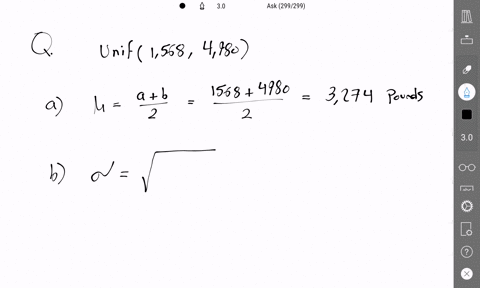 3.0 Ask (299/299)
Q. Unif(1,568, 4,980)
a) μ = a+b/2 = 1568+4980/2 = 3,274 Pounds
b) σ = √
3.0